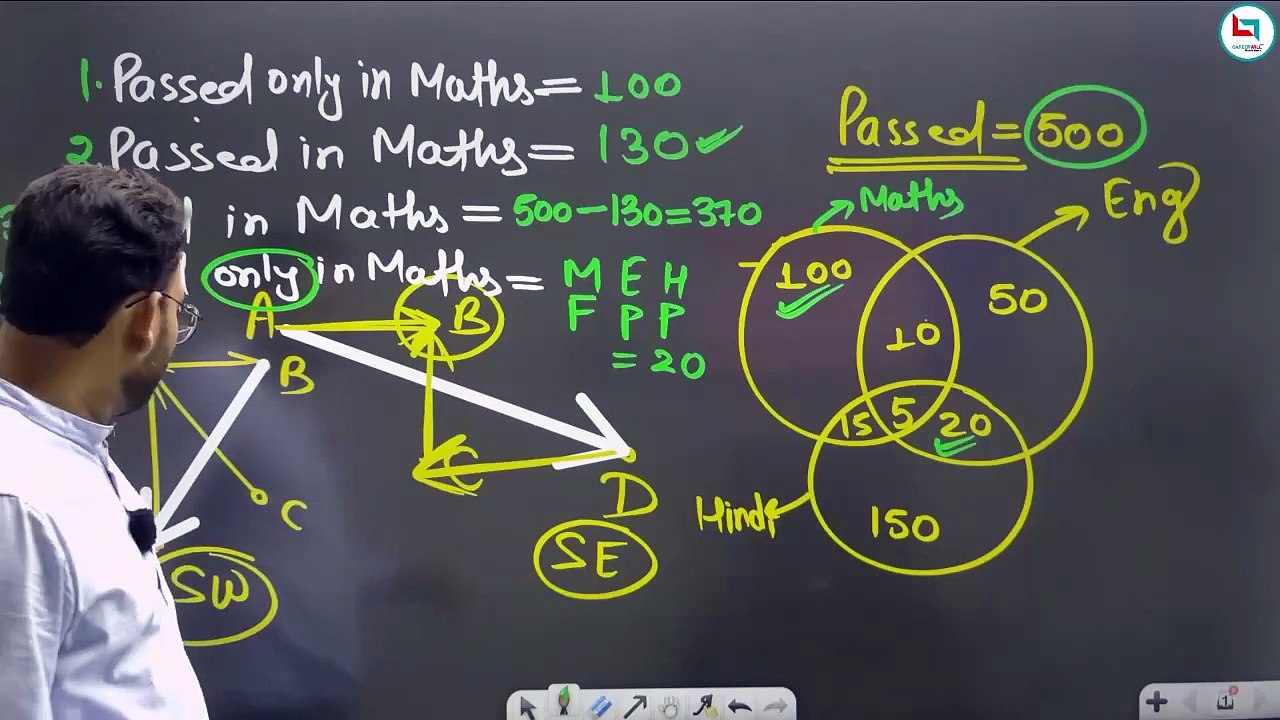 1. Passed only in Maths = 100
2. Passed in Maths = 130 ✓
in Maths = 500-130=370
only in Maths = M E H
F P P
= 20
A B
B
C
C
D
SW
SE
Passed = 500
Maths
Eng
100
50
10
15 5 20
Hindi
150
CAREERWILL
1